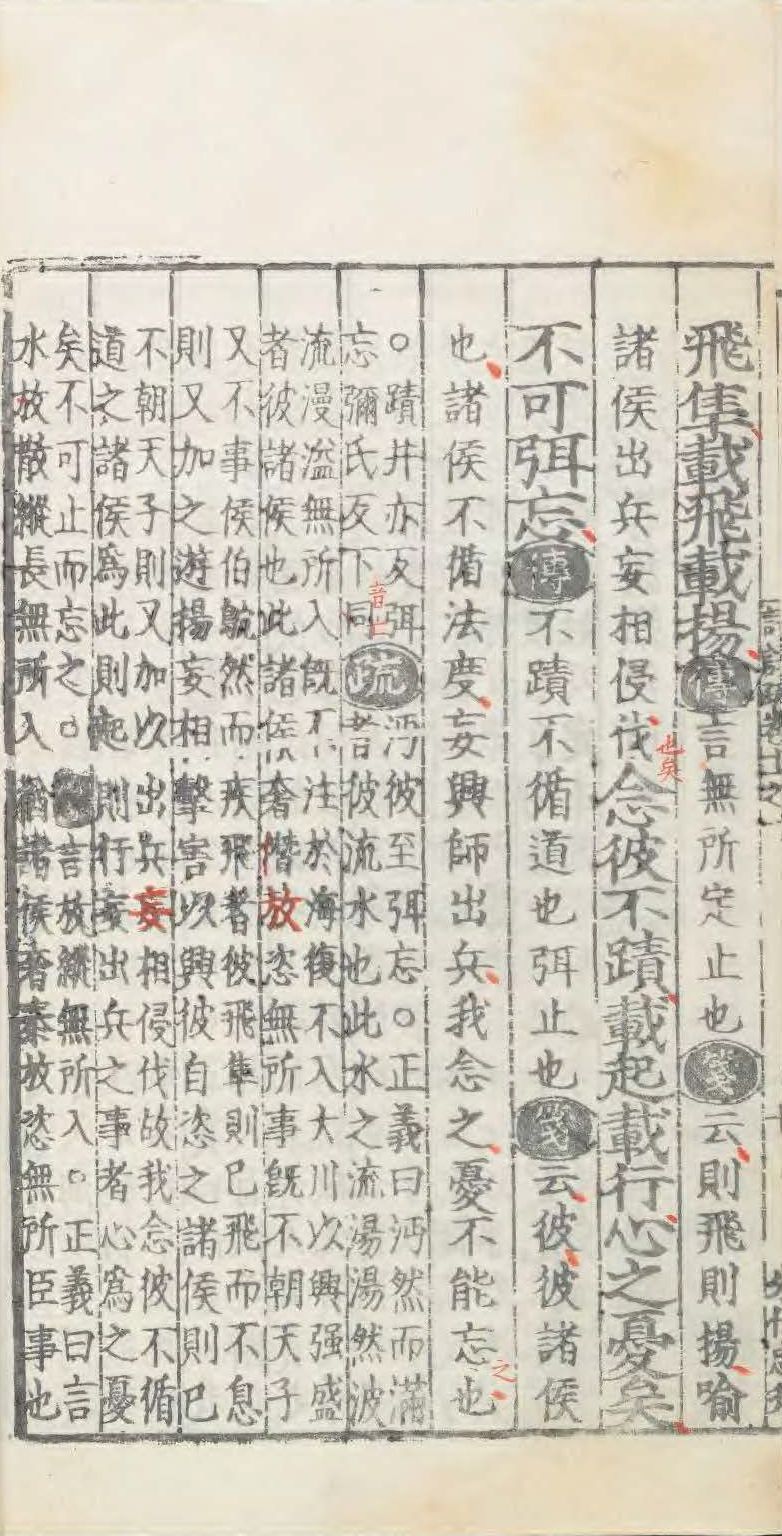 飛隼載飛載揚傳言無所定止也箋云則飛則揚喻
諸侯出兵妄相侵伐念彼不蹟載起載行心之憂矣
也矣
不可弭忘傳不蹟不循道也弭止也箋云彼彼諸侯
也諸侯不循法度妄興師出兵我念之憂不能忘也
之
○蹟井亦反弭
忘彌氏反下同
音亡
疏沔彼至弭忘○正義曰沔然而滿
者彼流水也此水之流湯湯然波
流漫溢無所入既不注於海復不入大川以興强盛
者彼諸侯也此諸侯奢僭放恣無所事既不朝天子
又不事侯伯鴥然而疾飛者彼飛隼則已飛而不息
則又加之遊揚妄相擊害以興彼自恣之諸侯則已
不朝天子則又加以出兵妄相侵伐故我念彼不循
道之諸侯爲此則起則行妄出兵之事者心爲之憂
矣不可止而忘之○言放縱無所入○正義曰言
水放散縱長無所入猶諸侯奢泰放恣無所臣事也